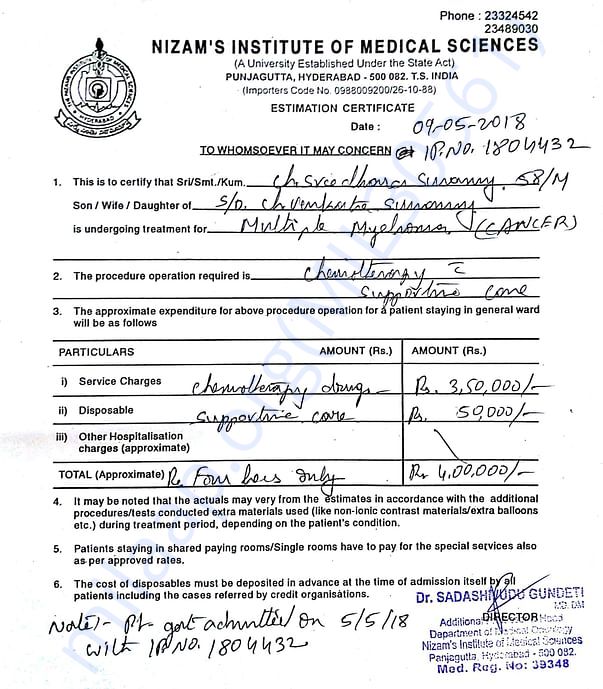 Phone : 23324542
23489030
NIZAM'S INSTITUTE OF MEDICAL SCIENCES
(A University Established Under the State Act)
PUNJAGUTTA, HYDERABAD - 500 082. T.S. INDIA
(Importers Code No. 0988009200/26-10-88)
ESTIMATION CERTIFICATE
Date : 09-05-2018
TO WHOMSOEVER IT MAY CONCERN IP.NO. 1804432
1. This is to certify that Sri/Smt./Kum. Ch. Sreedhara Swamy. 58/M
Son / Wife / Daughter of S/o. Ch. Venkata Swamy
is undergoing treatment for Multiple Myeloma (CANCER)
2. The procedure operation required is Chemotherapy c̄
supportive care
3. The approximate expenditure for above procedure operation for a patient staying in general ward
will be as follows
PARTICULARS AMOUNT (Rs.) AMOUNT (Rs.)
i) Service Charges chemotherapy drugs Rs. 3,50,000/-
ii) Disposable supportive care Rs. 50,000/-
iii) Other Hospitalisation
charges (approximate)
TOTAL (Approximate) Rs Four lacs only Rs 4,00,000/-
4. It may be noted that the actuals may very from the estimates in accordance with the additional
procedures/tests conducted extra materials used (like non-ionic contrast materials/extra balloons
etc.) during treatment period, depending on the patient's condition.
5. Patients staying in shared paying rooms/Single rooms have to pay for the special services also
as per approved rates.
6. The cost of disposables must be deposited in advance at the time of admission itself by all
patients including the cases referred by credit organisations.
Note:- Pt. got admitted on 5/5/18
with IP NO. 1804432
Dr. SADASHIVUDU GUNDETI
MD. DM
DIRECTOR
Additional
Department of Medical Oncology
Nizam's Institute of Medical Sciences
Panjagutta, Hyderabad - 500 082.
Med. Reg. No: 39348